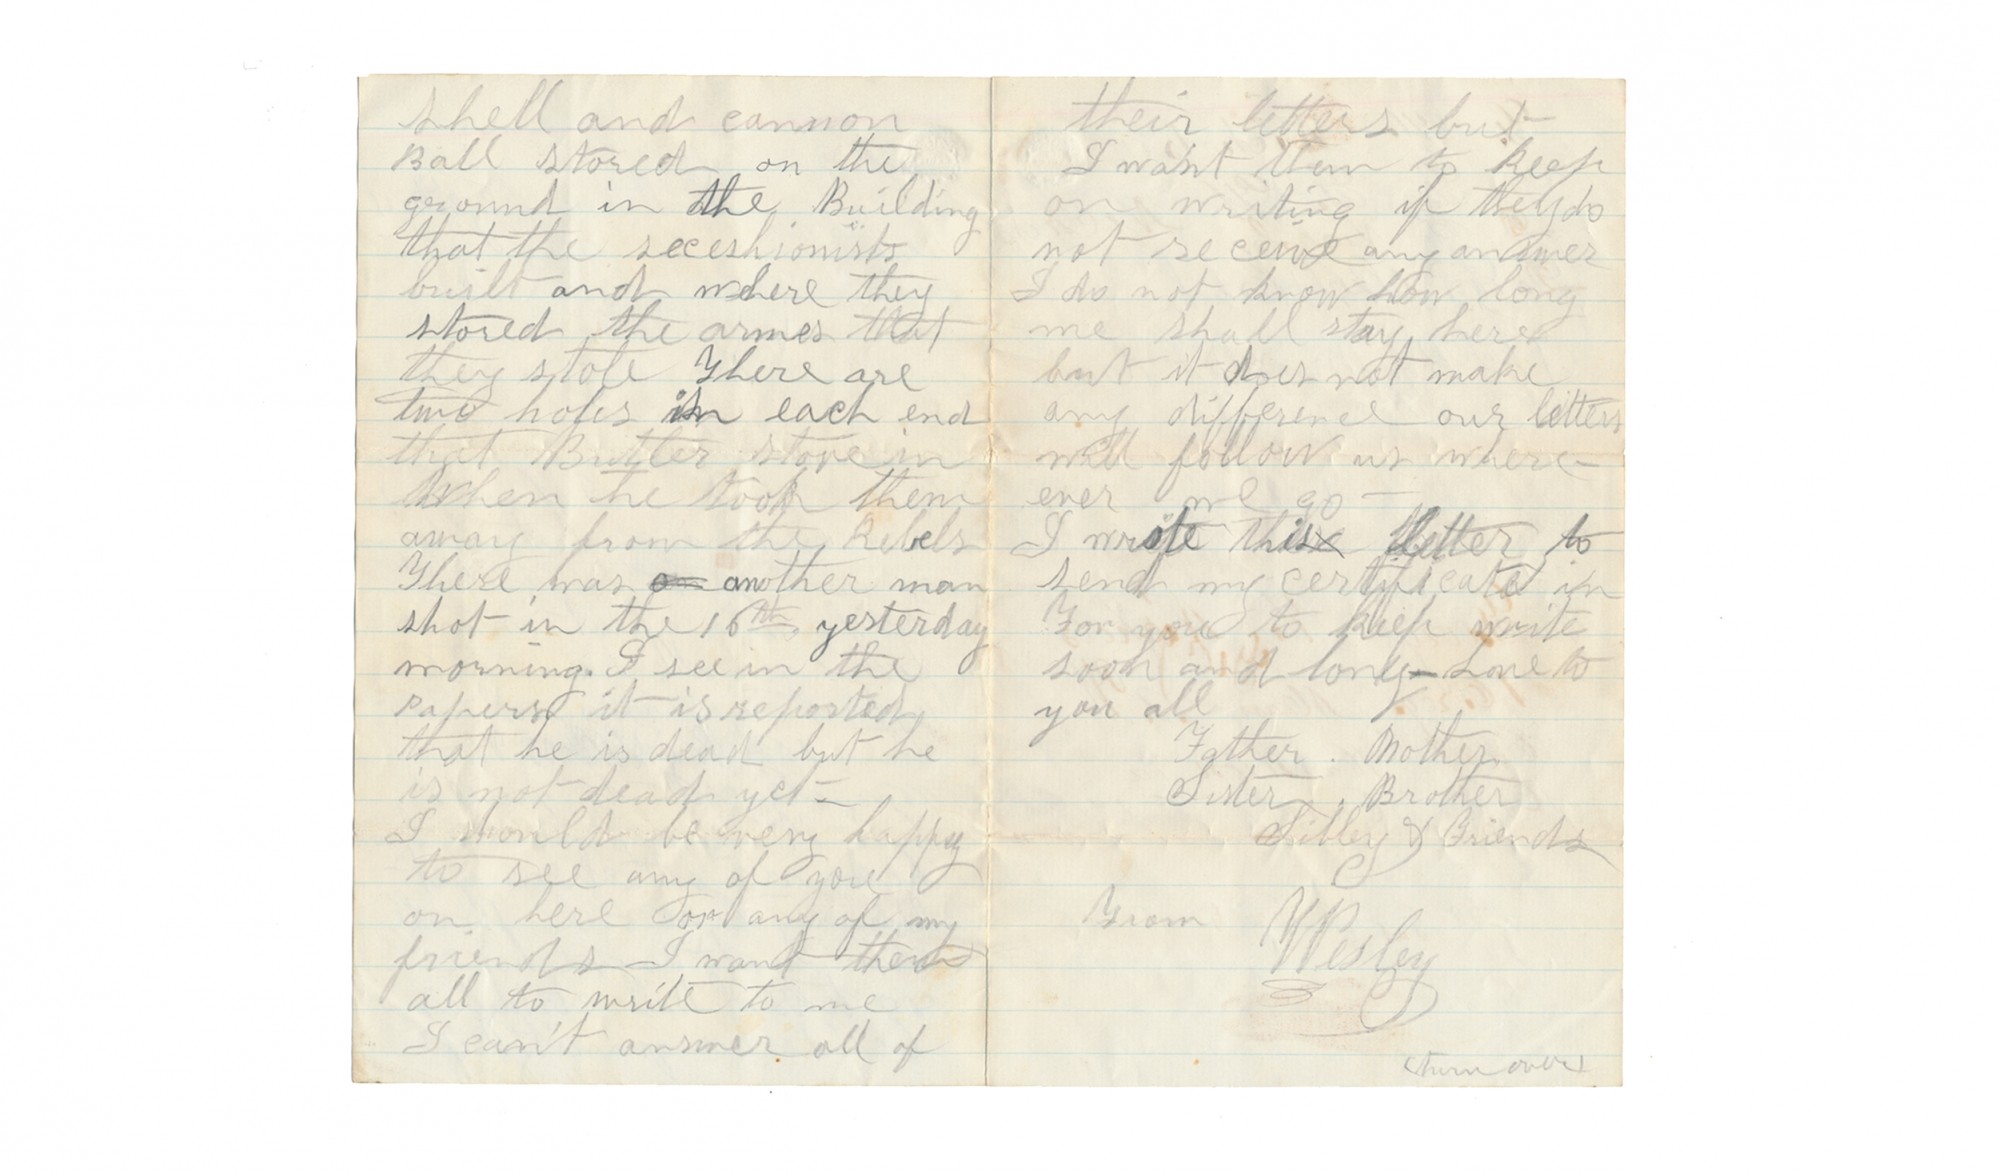 shell and cannon
Ball stored on the
ground in the Building
that the seceshionists
built and where they
stored the armes that
they stole There are
two holes in each end
that Butler stove in
When he took them
away from the Rebels
There was another man
shot in the 16th. yesterday
morning. I see in the
Papers it is reported
that he is dead but he
is not dead yet-
I would be very happy
to see any of you
on here or any of my
friends I want them
all to write to me
I can't answer all of
their letters but-
I want them to keep
on writing if they do
not receive any answer
I do not know how long
we shall stay here
but it does not make
any difference our letters
will follow us where-
ever we go -
I wrote this letter to
send my certificate in
For you to keep write
soon and long - Love to
you all
Father. Mother.
Sister. Brother
Sibley & Friends
From Wesley
(turn over)